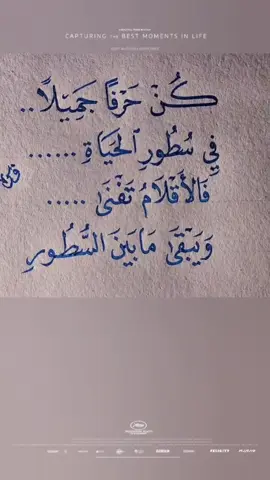 CAPTURING the BEST MOMENTS IN LIFE
كُنْ حَرْفًا جَمِيلًا..
فِي سُطُورِ الْحَيَاةِ ......
فَالأَقْلَامُ تَفْنَىٰ .....
وَيَبْقَىٰ مَا بَيْنَ السُّطُورِ